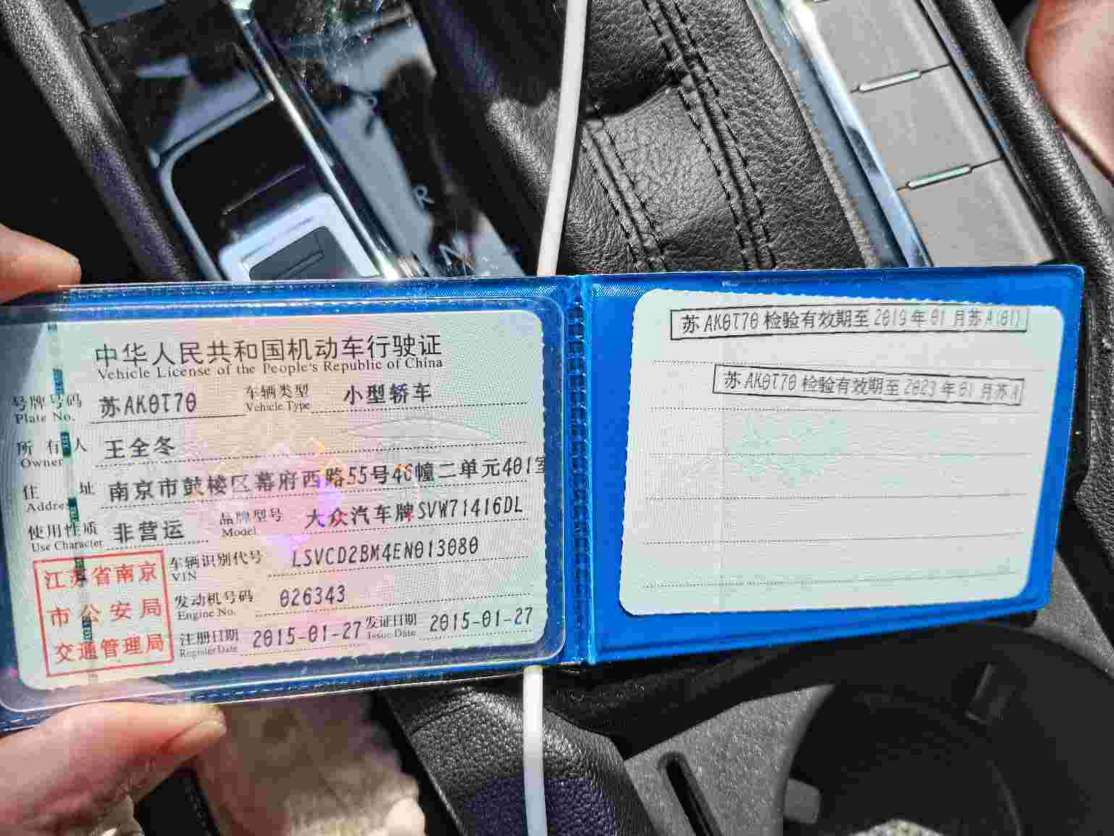 中华人民共和国机动车行驶证
Vehicle License of the People's Republic of China
号牌号码 苏AK0T70 车辆类型 小型轿车
Plate No. Vehicle Type
所有人 王全冬
Owner
住址 南京市鼓楼区幕府西路55号46幢二单元401室
Address
使用性质 非营运 品牌型号 大众汽车牌SVW71416DL
Use Character Model
车辆识别代号 LSVCD2BM4EN013080
VIN
发动机号码 026343
Engine No.
注册日期 2015-01-27 发证日期 2015-01-27
Register Date Issue Date
江苏省南京
市公安局
交通管理局
苏AK0T70检验有效期至2019年01月苏A(01)
苏AK0T70检验有效期至2023年01月苏A
R
N